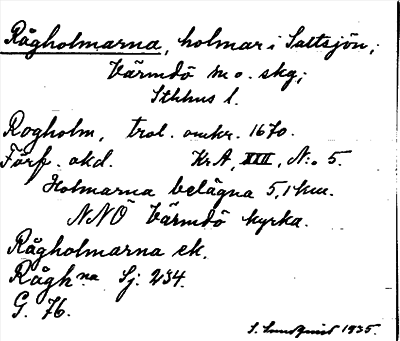 Rågholmarna, holmar i Saltsjön,
Värmdö m. o. skg;
Sthlms l.
Rogholm, trol. omkr. 1670.
Förf. okd. KrA, XIII, N:o 5.
Holmarna belägna 5,1 km.
NNÖ Värmdö kyrka.
Rågholmarna ek.
Rågh.na Sj. 234.
G. 76.
S. Lundqvist 1935.